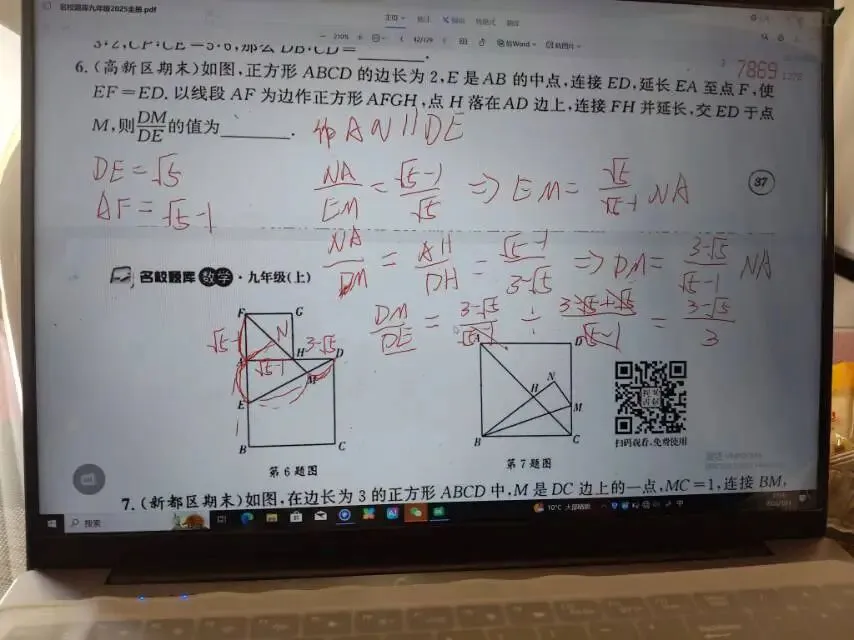 名校题库九年级2025全册.pdf
3:2,CF:CE=5:6,那么 DB:CD=
6.(高新区期末)如图,正方形 ABCD 的边长为 2,E 是 AB 的中点,连接 ED,延长 EA 至点 F,使
EF=ED.以线段 AF 为边作正方形 AFGH,点 H 落在 AD 边上,连接 FH 并延长,交 ED 于点
M,则DM/DE的值为________.
作AN∥DE
DE=√5
AF=√5-1
NA/EM=(√5-1)/√5 ⇒ EM=√5/(√5-1) NA
37
NA/DM=AH/DH=(√5-1)/(3-√5) ⇒ DM=(3-√5)/(√5-1) NA
名校题库 数学·九年级(上)
DM/DE=(3-√5)/(√5-1)÷(3-√5+√5)/(√5-1)=(3-√5)/3
F G
√5-1 N 3-√5
A √5-1 H D
M
E
1
B C
第 6 题图
A D
N
H
M
B C
第 7 题图
扫码观看,免费使用
7.(新都区期末)如图,在边长为 3 的正方形 ABCD 中,M 是 DC 边上的一点,MC=1,连接 BM,
搜索
10°C